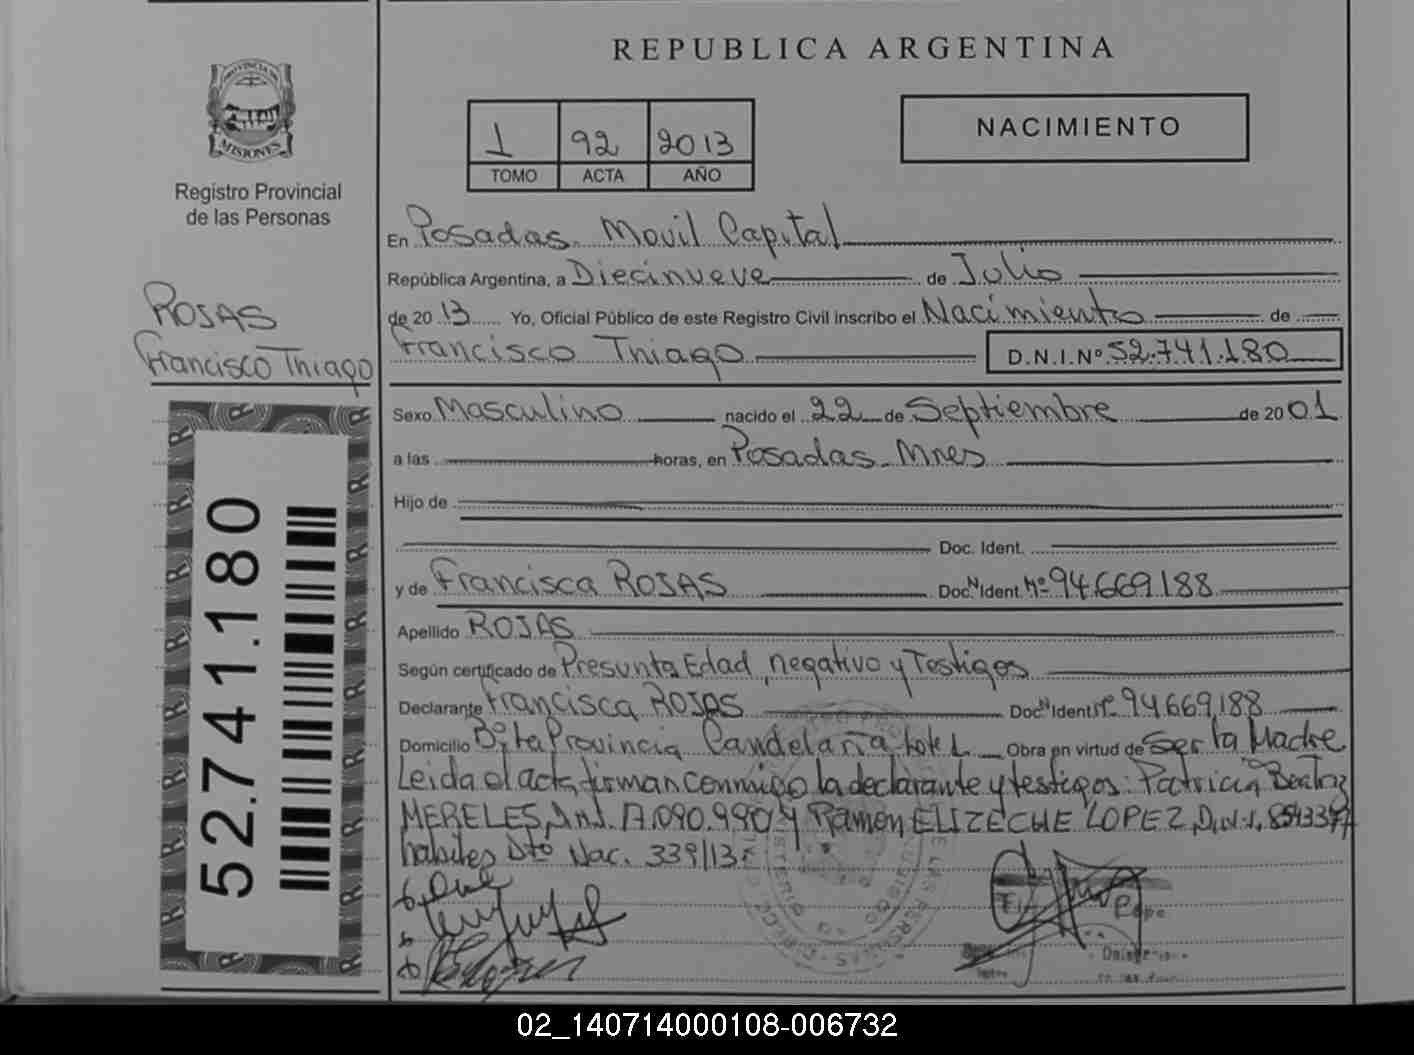 REPUBLICA ARGENTINA
PROVINCIA DE
MISIONES
Registro Provincial
de las Personas
1 92 2013
TOMO ACTA AÑO
NACIMIENTO
En Posadas Movil Capital
República Argentina, a Diecinueve de Julio
de 2013 Yo, Oficial Público de este Registro Civil inscribo el Nacimiento de
Francisco Thiago D.N.I.Nº 52.741.180
ROJAS
Francisco Thiago
Sexo Masculino nacido el 22 de Septiembre de 2001
a las horas, en Posadas Mnes
Hijo de
Doc. Ident.
y de Francisca ROJAS Doc. Ident. Nº 94.669.188
Apellido ROJAS
Según certificado de Presunta Edad, negativo y Testigos
Declarante Francisca ROJAS Doc. Ident. Nº 94669188
Domicilio Bº Provincia Candelaria Lote 1 Obra en virtud de Ser la Madre
Leida el acta, firman conmigo la declarante y testigos: Patricia Beatriz
MERELES, D.N.I. 17.090.990 y Ramon ELIZECHE LOPEZ, D.N.I.
habiles Dto Nac. 339/13
52.741.180
02_140714000108-006732